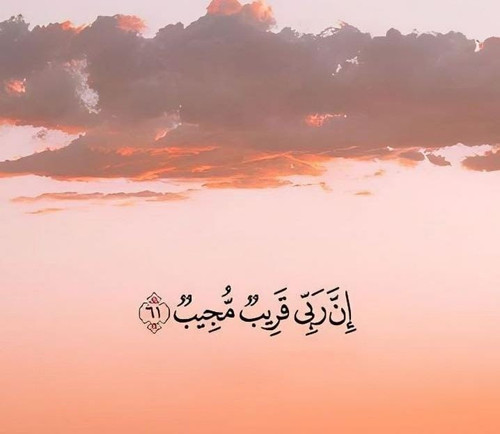 إِنَّ رَبِّى قَرِيبٌ مُّجِيبٌ ٦١